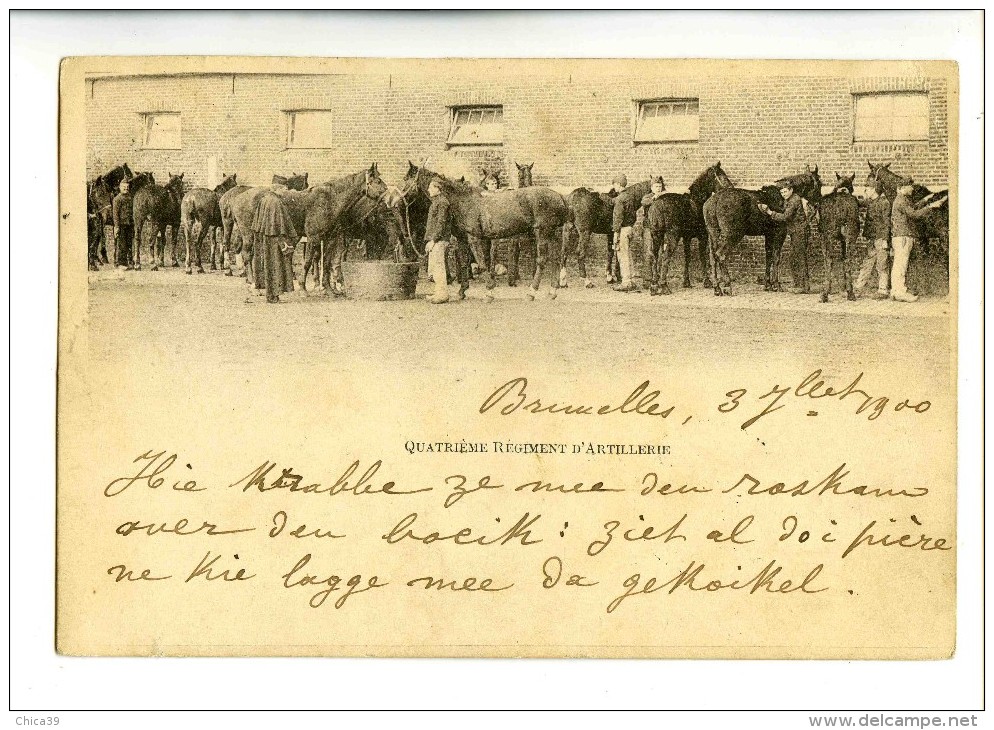 Bruxelles, 3 7llet 1900
QUATRIÈME RÉGIMENT D'ARTILLERIE
Hie krabbe ze mee den roskam
over den bocik : ziet al doi pière
ne kie lagge mee da gekoikel.
Chica39
http://www.delcampe.net